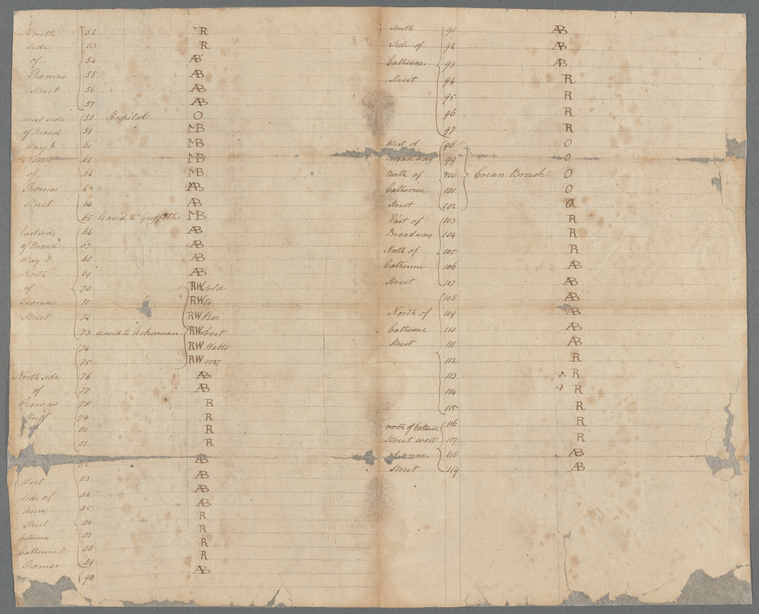 South 52 R
side 53 R
of 54 AB
Thomas 55 AB
Street 56 AB
57 AB
west side 58 Hospital O
of Broad 59 MB
Way & 60 MB
North 61 MB
of 62 MB
Thomas 63 AB
Street 64 AB
65 Leased to Griffiths MB
East side 66 AB
of Broad 67 AB
Way & 68 AB
North 69 AB
of 70 RW
Thomas 71 RW
Street 72 RW
73 Leased to Ackerman RW Robert
74 RW Watts
75 RW
North side 76 AB
of 77 AB
Thomas 78 R
Street 79 R
80 R
81 R
82 AB
West 83 AB
side of 84 AB
Anne 85 AB
Street 86 R
between 87 R
Catherine & 88 R
Thomas 89 R
90 AB
South 91 AB
Side of 92 AB
Catherine 93 AB
Street 94 R
95 R
96 R
97 R
West of 98 O
Broadway 99 O
North of 100 Crean Brush O
Catherine 101 O
Street 102 O
East of 103 R
Broadway 104 R
North of 105 R
Catherine 106 AB
Street 107 AB
108 AB
North of 109 AB
Catherine 110 AB
Street 111 AB
112 R
113 R
114 R
115 R
north of Catherine 116 R
Street west 117 R
of Anne 118 AB
Street 119 AB